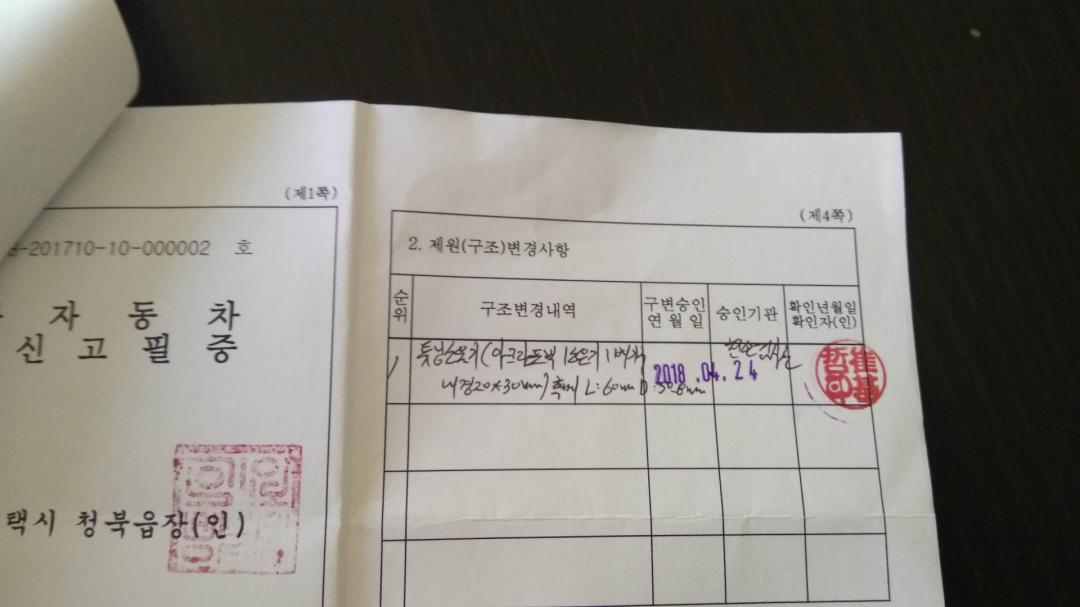 (제1쪽)
-201710-10-000002 호
자 동 차
신 고 필 증
택시 청북읍장(인)
(제4쪽)
2. 제원(구조)변경사항
순위
구조변경내역
구변승인
연 월 일
승인기관
확인년월일
확인자(인)
1
튜닝소음기(아크라포빅 1소음기 1
2018 .04. 24
내경20×30mm) L:60mm